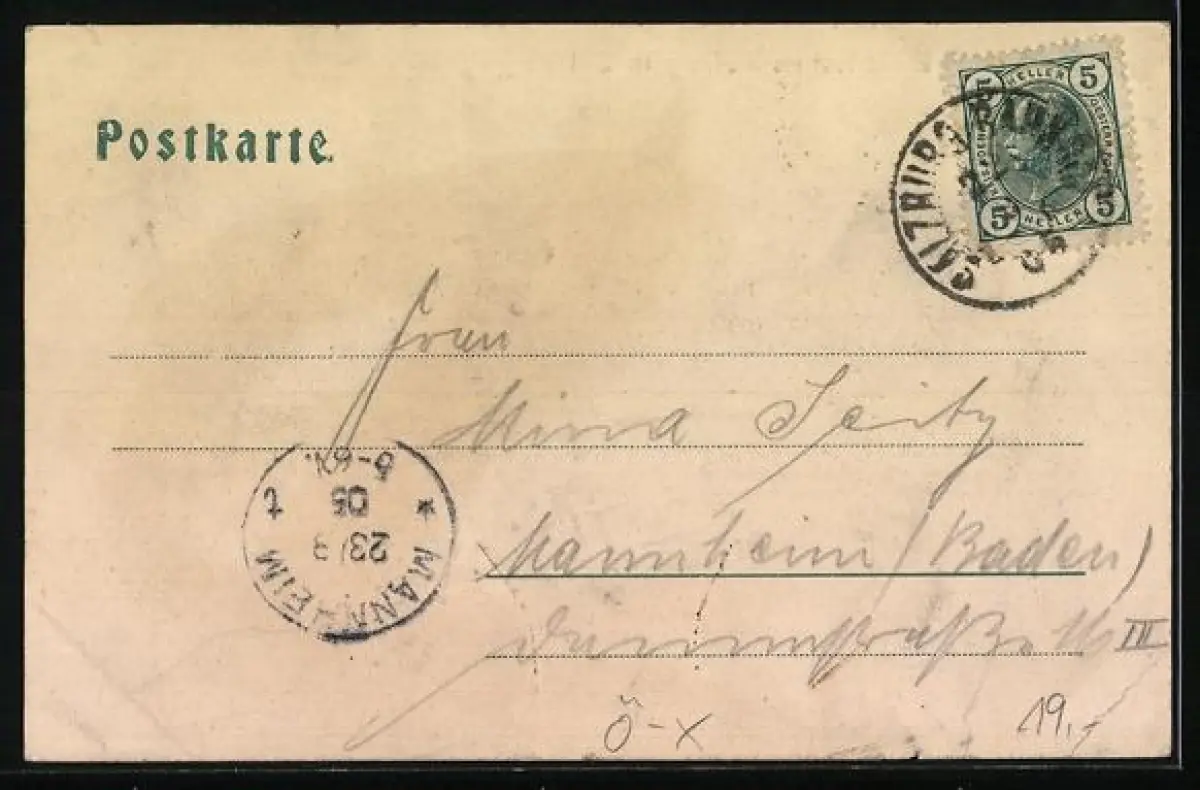 Postkarte.
5 HELLER 5
5 HELLER 5
SALZBURG
Frau
Mina Seitz
Mannheim (Baden)
III
* MANNHEIM
23/8
05
5-6N.
Ö-X
19,-